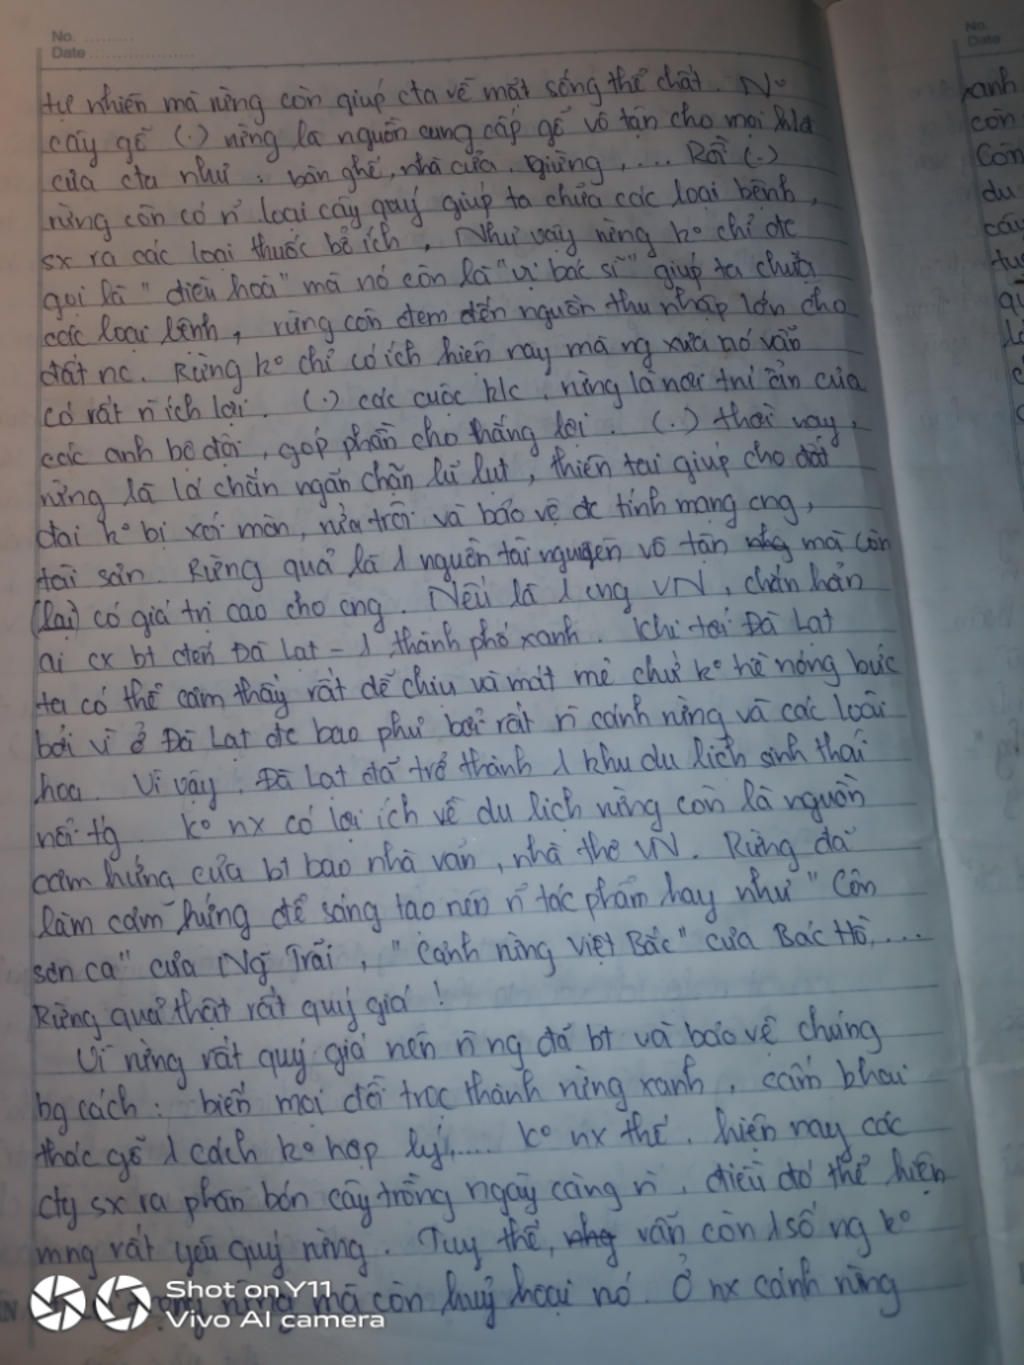 No.
Date
tự nhiên mà rừng còn giúp cta về mặt sống thể chất. N°
cây gỗ (.) rừng là nguồn cung cấp gỗ vô tận cho mọi
của cta như: bàn ghế, nhà cửa, giường, .... Rồi (.)
rừng còn có n̄ loại cây quý giúp ta chữa các loại bệnh,
sx ra các loại thuốc bổ ích, Như vậy rừng k° chỉ đc
gọi là "điều hoà" mà nó còn là "vị bác sĩ" giúp ta chữa
các loại bệnh, rừng còn đem đến nguồn thu nhập lớn cho
đất nc. Rừng k° chỉ có ích hiện nay mà ng xưa nó vẫn
có rất n̄ ích lợi. (.) các cuộc k/c, rừng là nơi trú ẩn của
các anh bộ đội, góp phần cho thắng lợi... (.) thời nay,
rừng là lá chắn ngăn chặn lũ lụt, thiên tai giúp cho đất
đai k° bị xói mòn, rửa trôi và bảo vệ đc tính mạng cng,
tài sản. Rừng quả là 1 nguồn tài nguyên vô tận nhg mà còn
(lại) có giá trị cao cho cng. Nếu là 1 cng VN, chắn hẳn
ai cx bt đến Đà Lạt - 1 thành phố xanh. Khi tới Đà Lạt
ta có thể cảm thấy rất dễ chịu và mát mẻ chứ k° hề nóng bức
bởi vì ở Đà Lạt đc bao phủ bởi rất n̄ cánh rừng và các loài
hoa. Vì vậy, Đà Lạt đã trở thành 1 khu du lịch sinh thái
nổi tg. K° nx có lợi ích về du lịch rừng còn là nguồn
cảm hứng của bt bao nhà văn, nhà thơ VN. Rừng đã
làm cảm hứng để sáng tạo nên n̄ tác phẩm hay như "Côn
sơn ca" của Ng Trãi, "Cảnh rừng Việt Bắc" của Bác Hồ,....
Rừng quả thật rất quý giá!
Vì rừng rất quý giá nên n̄ ng đã bt và bảo vệ chúng
bg cách: biến mọi đồi trọc thành rừng xanh, cấm khai
thác gỗ 1 cách k° hợp lý,.... K° nx thế, hiện nay các
cty sx ra phân bón cây trồng ngày càng n̄, điều đó thể hiện
mng rất yêu quý rừng. Tuy thế, nhg vẫn còn 1 số ng k°
trọng rừng mà còn huỷ hoại nó. Ở nx cánh rừng
Shot on Y11
Vivo AI camera
No.
Date
xanh
còn
Còn
du